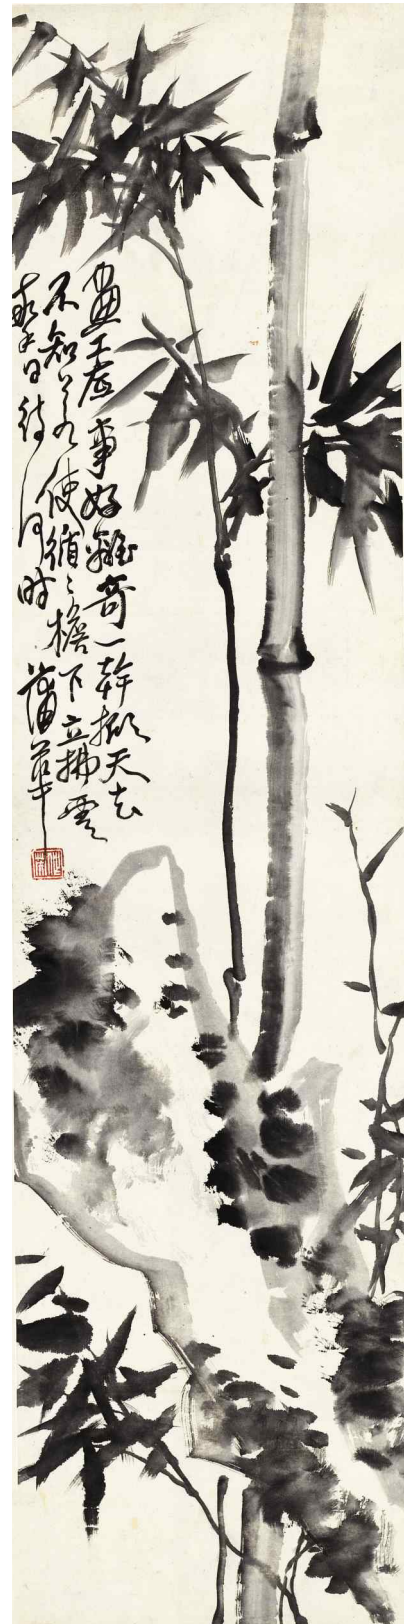 畫工底事好離奇一幹掀天去
不知若使循〻檐下立拂雲
擎日待何時 蒲華